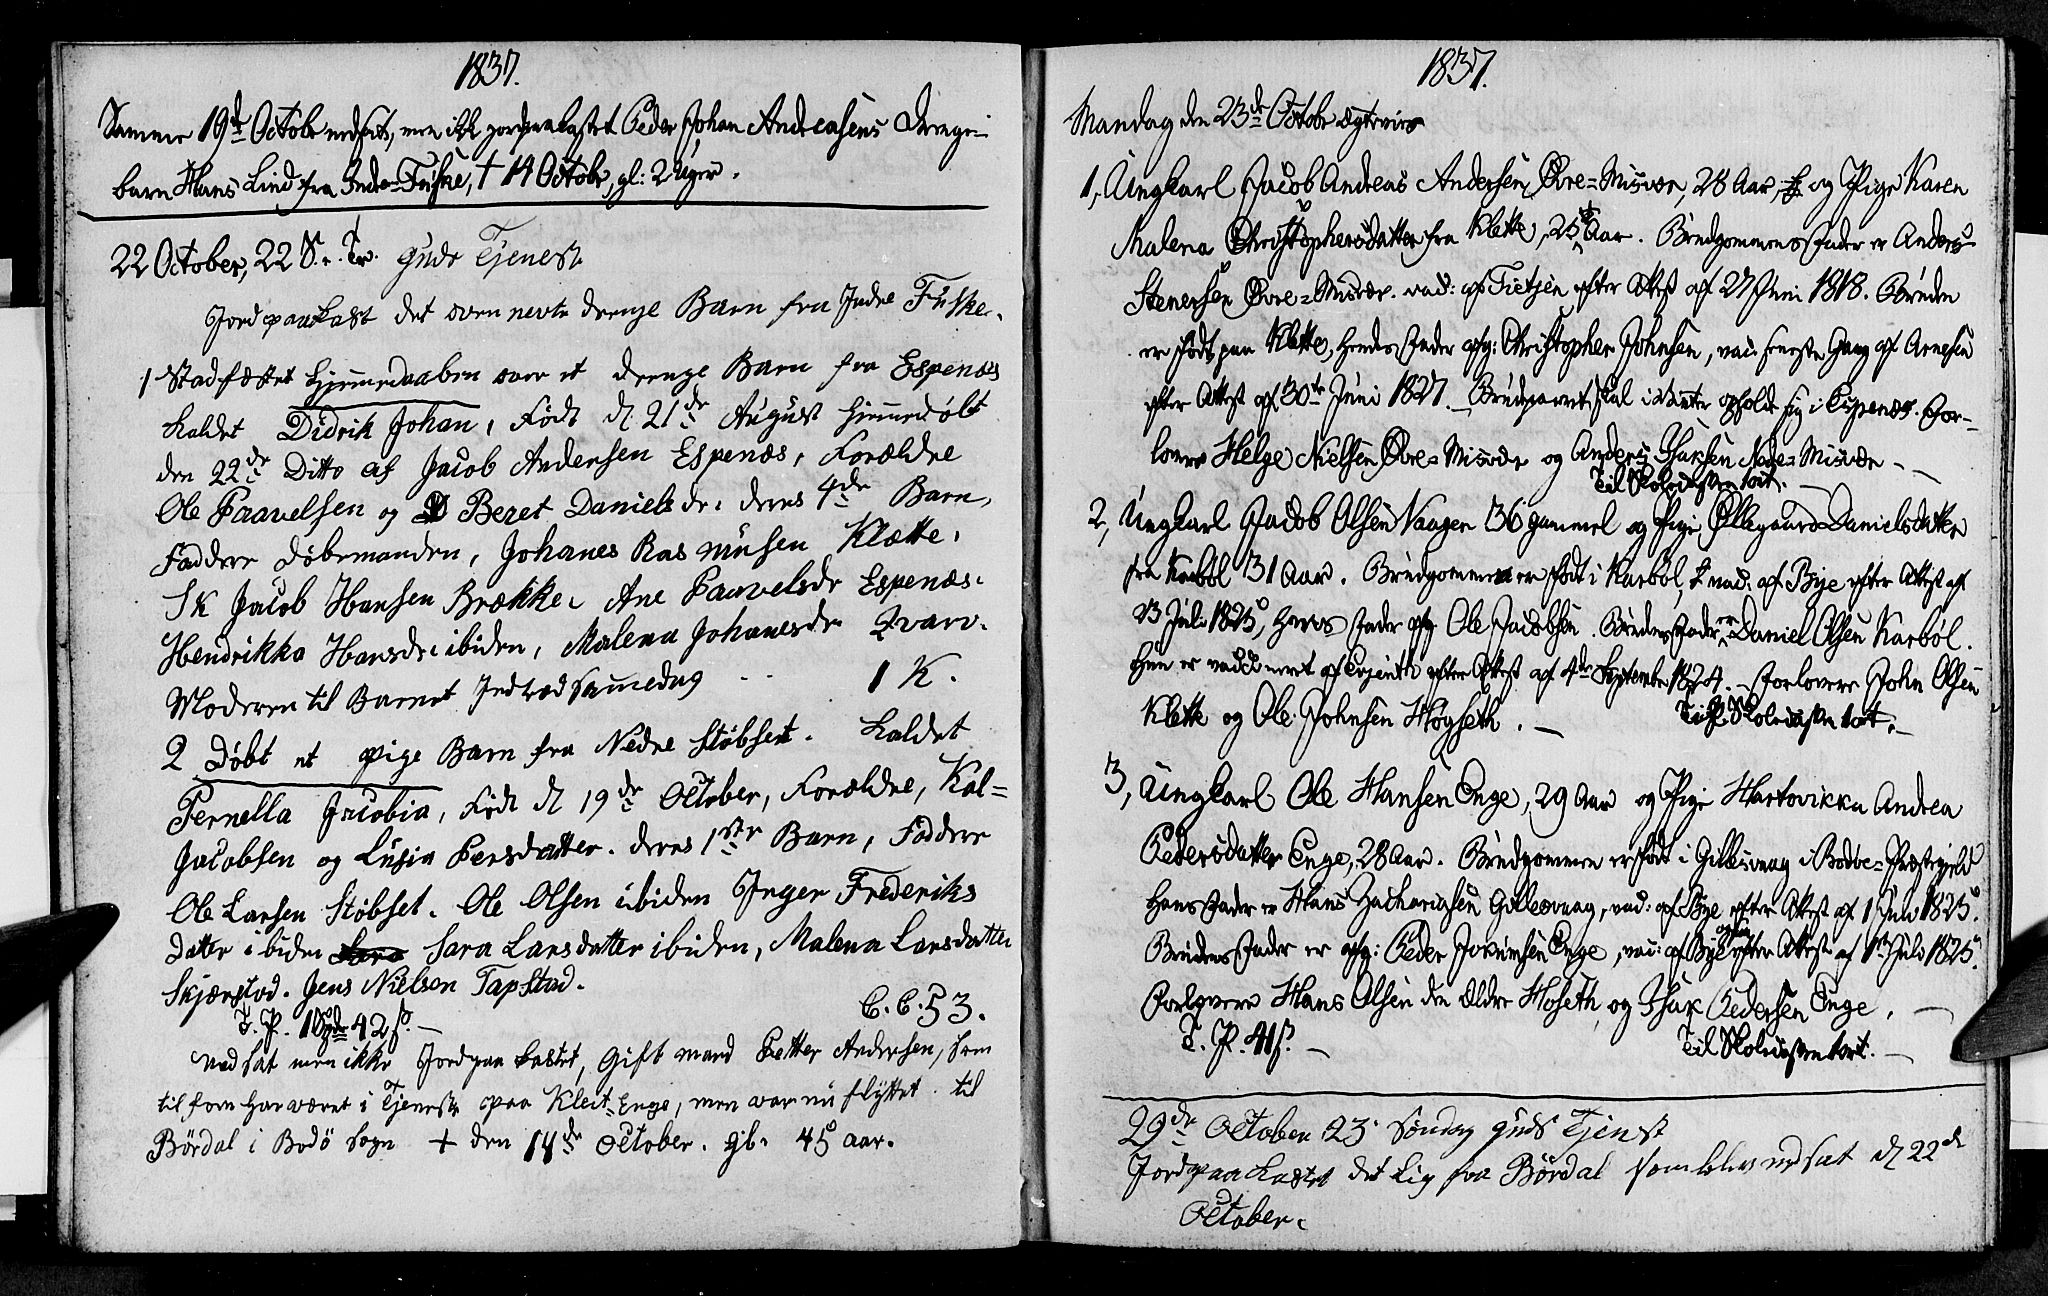 1837.
Samme 19de Octobr nedsat, men ikke jordpaakastet Peder Johan Andreasens Drenge-
barn Hans Lind fra Indre-Fuske, † 14 Octobr, gl: 2 Uger.
22 October, 22 S. e. Tr. Guds Tjenest
Jordpaakast det ovennevte drenge Barn fra Indre Fuske.
1 Stadfæstet Hjemmedaaben over et drenge Barn fra Espenæs
kaldet Didrik Johan, Født d 21de August hjemmedøbt
den 22de Ditto af Jacob Andersen Espenæs, Forældre
Ole Paavelsen og Beret Danielsdr. deres 4de Barn,
Faddere Døbemanden, Johanes Rasmusen Klætte.
SK Jacob Hansen Brække. Ane Paavelsdr Espenæs.
Hendrikka Hansdr: ibiden, Malena Johanesdr Qvarv.
Moderen til Barnet Indled sammedag - - 1 K.
2 Døbt et pige Barn fra Nedre Støbset. kaldet
Pernella Jacobia, Født d 19de October, Forældre, Kal=
Jacobsen og Lusia Persdatter. deres 1ste Barn, Faddere
Ole Larsen Støbset. Ole Olsen ibiden Inger Frederiks
datter ibiden Sara Larsdatter ibiden, Malena Larsdatter
Skjærstad. Jens Nielsen Tapstad.
C. C. 53.
T. P. 42 s. —
Nedsat men ikke Jordpaakastet, Gift mand Petter Andersen, som
til forn har været i Tjeneste paa Kleit-Enge, men var nu flyttet til
Børdal i Bodö sogn + den 14de October. gl. 45 aar.
1837.
Mandag den 23de Octobr ægteviet
1, Ungkarl Jacob Andreas Andersen Øvre=Misvær, 28 Aar, og Pige Karen
Malena Christophersdatter fra Klette, 25 Aar. Brudgommens Fader er Anders
Stenersen Øvre=Misvær. vac: af Tietjen efter Attest af 27 Juni 1818. Bruden
er født paa Klette, Hendes Fader afg: Christopher Johnsen, vac: Gang af Arnesen
efter Attest af 30te Juni 1827. Brudparret skal i Vinter opholde sig i Espenæs. For-
lovere Helge Nielsen Øvre=Misvær og Anders Isaksen Nedre=Misvær - -
Til Skolekassen 1 ort. —
2, Ungkarl Jacob Olsen Vaagen 36 gammel og Pige Øllegaard Danielsdatter
fra Karbøl 31 Aar. Brudgommen er født i Karbøl, vac: af Bye efter Attest af
23 Juli 1825, Hans Fader afg Ole Jacobsen. Brudens Fader er Daniel Olsen Karbøl.
Hun er vaccineret af efter Attest af 4de September 1824. Forlovere John Olsen
Klette og Ole Johnsen Høgseth. — Til Skolekassen 1 ort. —
3, Ungkarl Ole Hansen Enge, 29 Aar og Pige Hartvikka Andrea
Pedersdatter Enge, 28 Aar. Brudgommen er født i Gillesvaag i Bodøe-Præstegield
Hans Fader er Hans Zachariasen Gillesvaag, vac: af Bye efter Attest af 1 Juli 1825.
Brudens Fader er afg: Peder Joramsen Enge, vac: af Bye efter Attest af 1ste Juli 1825.
Forlovere Hans Olsen den Ældre Hoseth, og Isak Pedersen Enge. —
T. P. 41 s. — Til Skolekassen 1 ort. —
29de October 23. Søndag Guds Tjenst
Jordpaakastet det Lig fra Børdal som blev nedsat d 22de
October.